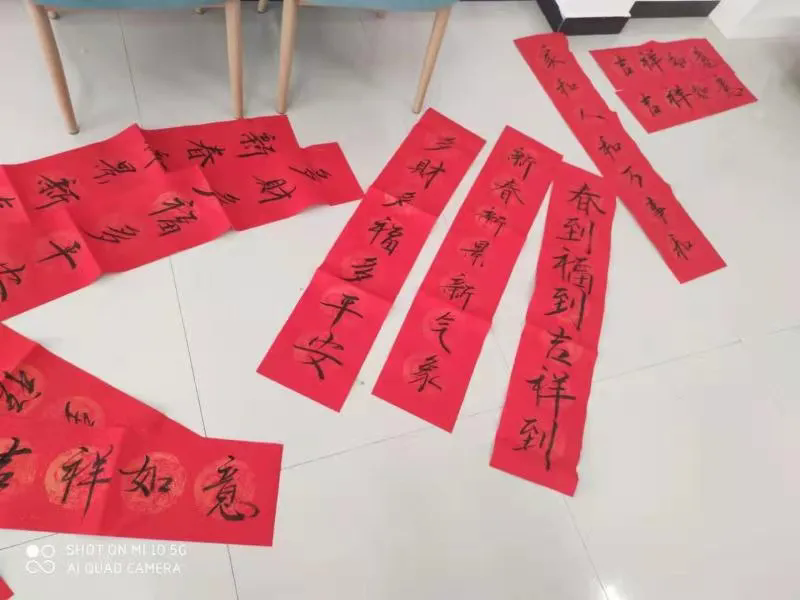 吉祥如意
吉祥如意
家和人和万事和
春到福到吉祥到
新春新景新气象
多财多福多平安
新春新景新
多财多福多平安
吉祥如意
SHOT ON MI 10 5G
AI QUAD CAMERA